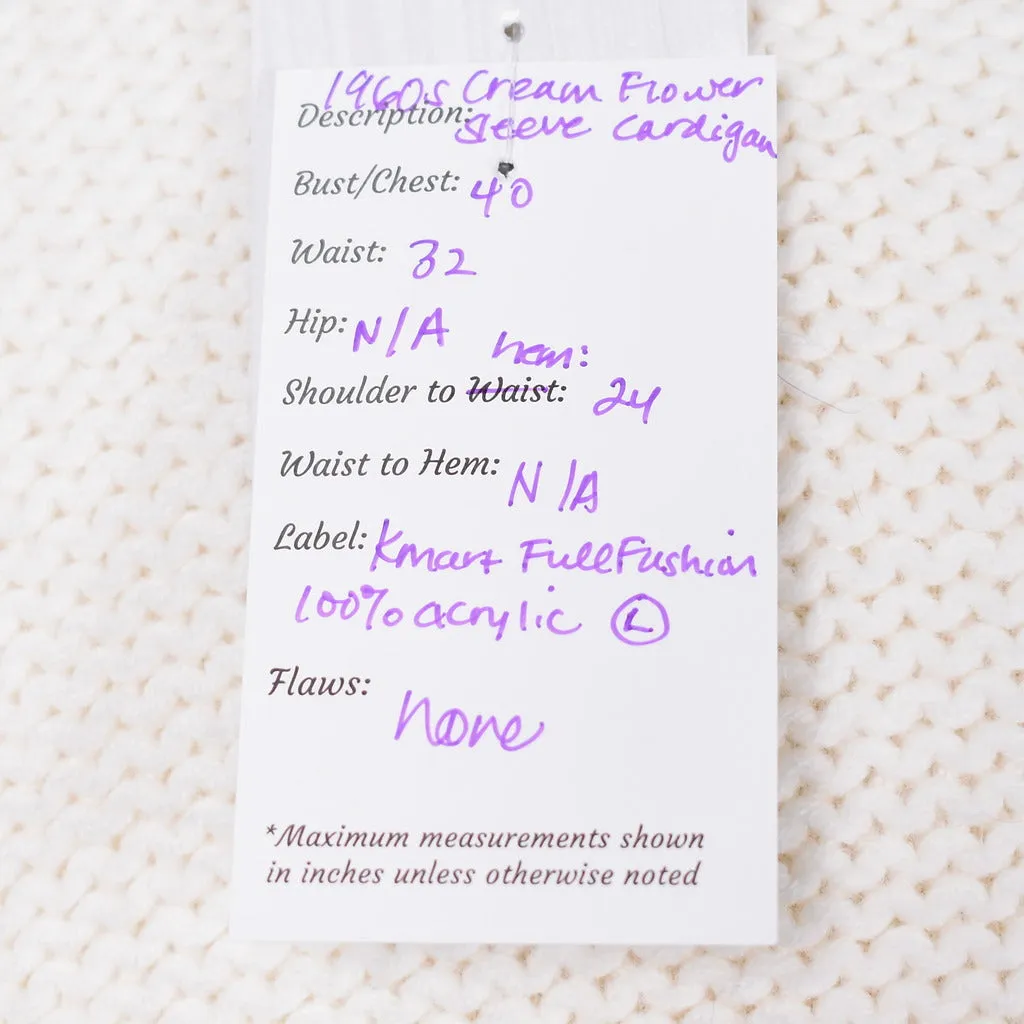 1960s Cream Flower
Description: Sleeve Cardigan
Bust/Chest: 40
Waist: 32
Hip: N/A
hem:
Shoulder to Waist: 24
Waist to Hem: N/A
Label: Kmart Full Fashion
100% acrylic L
Flaws:
None
*Maximum measurements shown
in inches unless otherwise noted